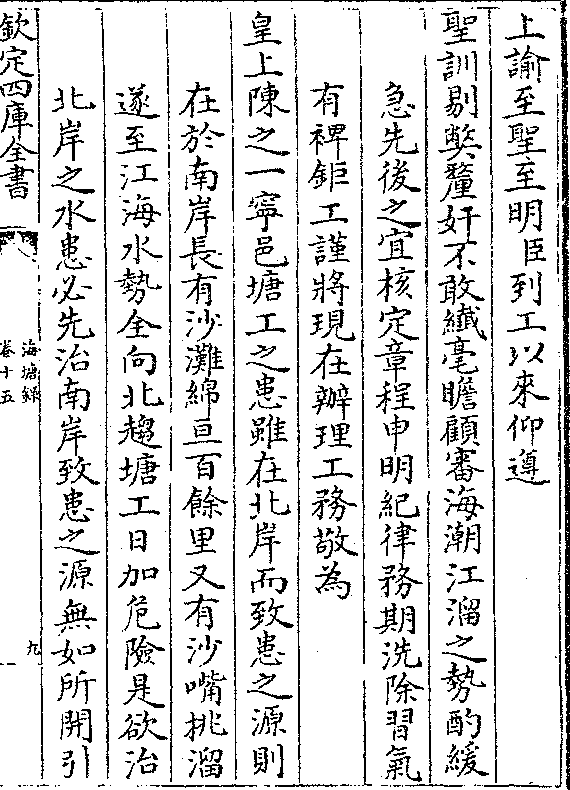 上諭至聖至明臣到工以來仰遵
聖訓剔獘釐奸不敢纎毫瞻顧審海潮江溜之勢酌緩
急先後之宜核定章程申明紀律務期洗除習氣
有裨鉅工謹將現在辦理工務敬為
皇上陳之一寧邑塘工之患雖在北岸而致患之源則
在於南岸長有沙灘綿亘百餘里又有沙嘴挑溜
遂至江海水勢全向北趨塘工日加危險是欲治
北岸之水患必先治南岸致患之源無如所開引
欽定四庫全書
海塘録
卷十五
九